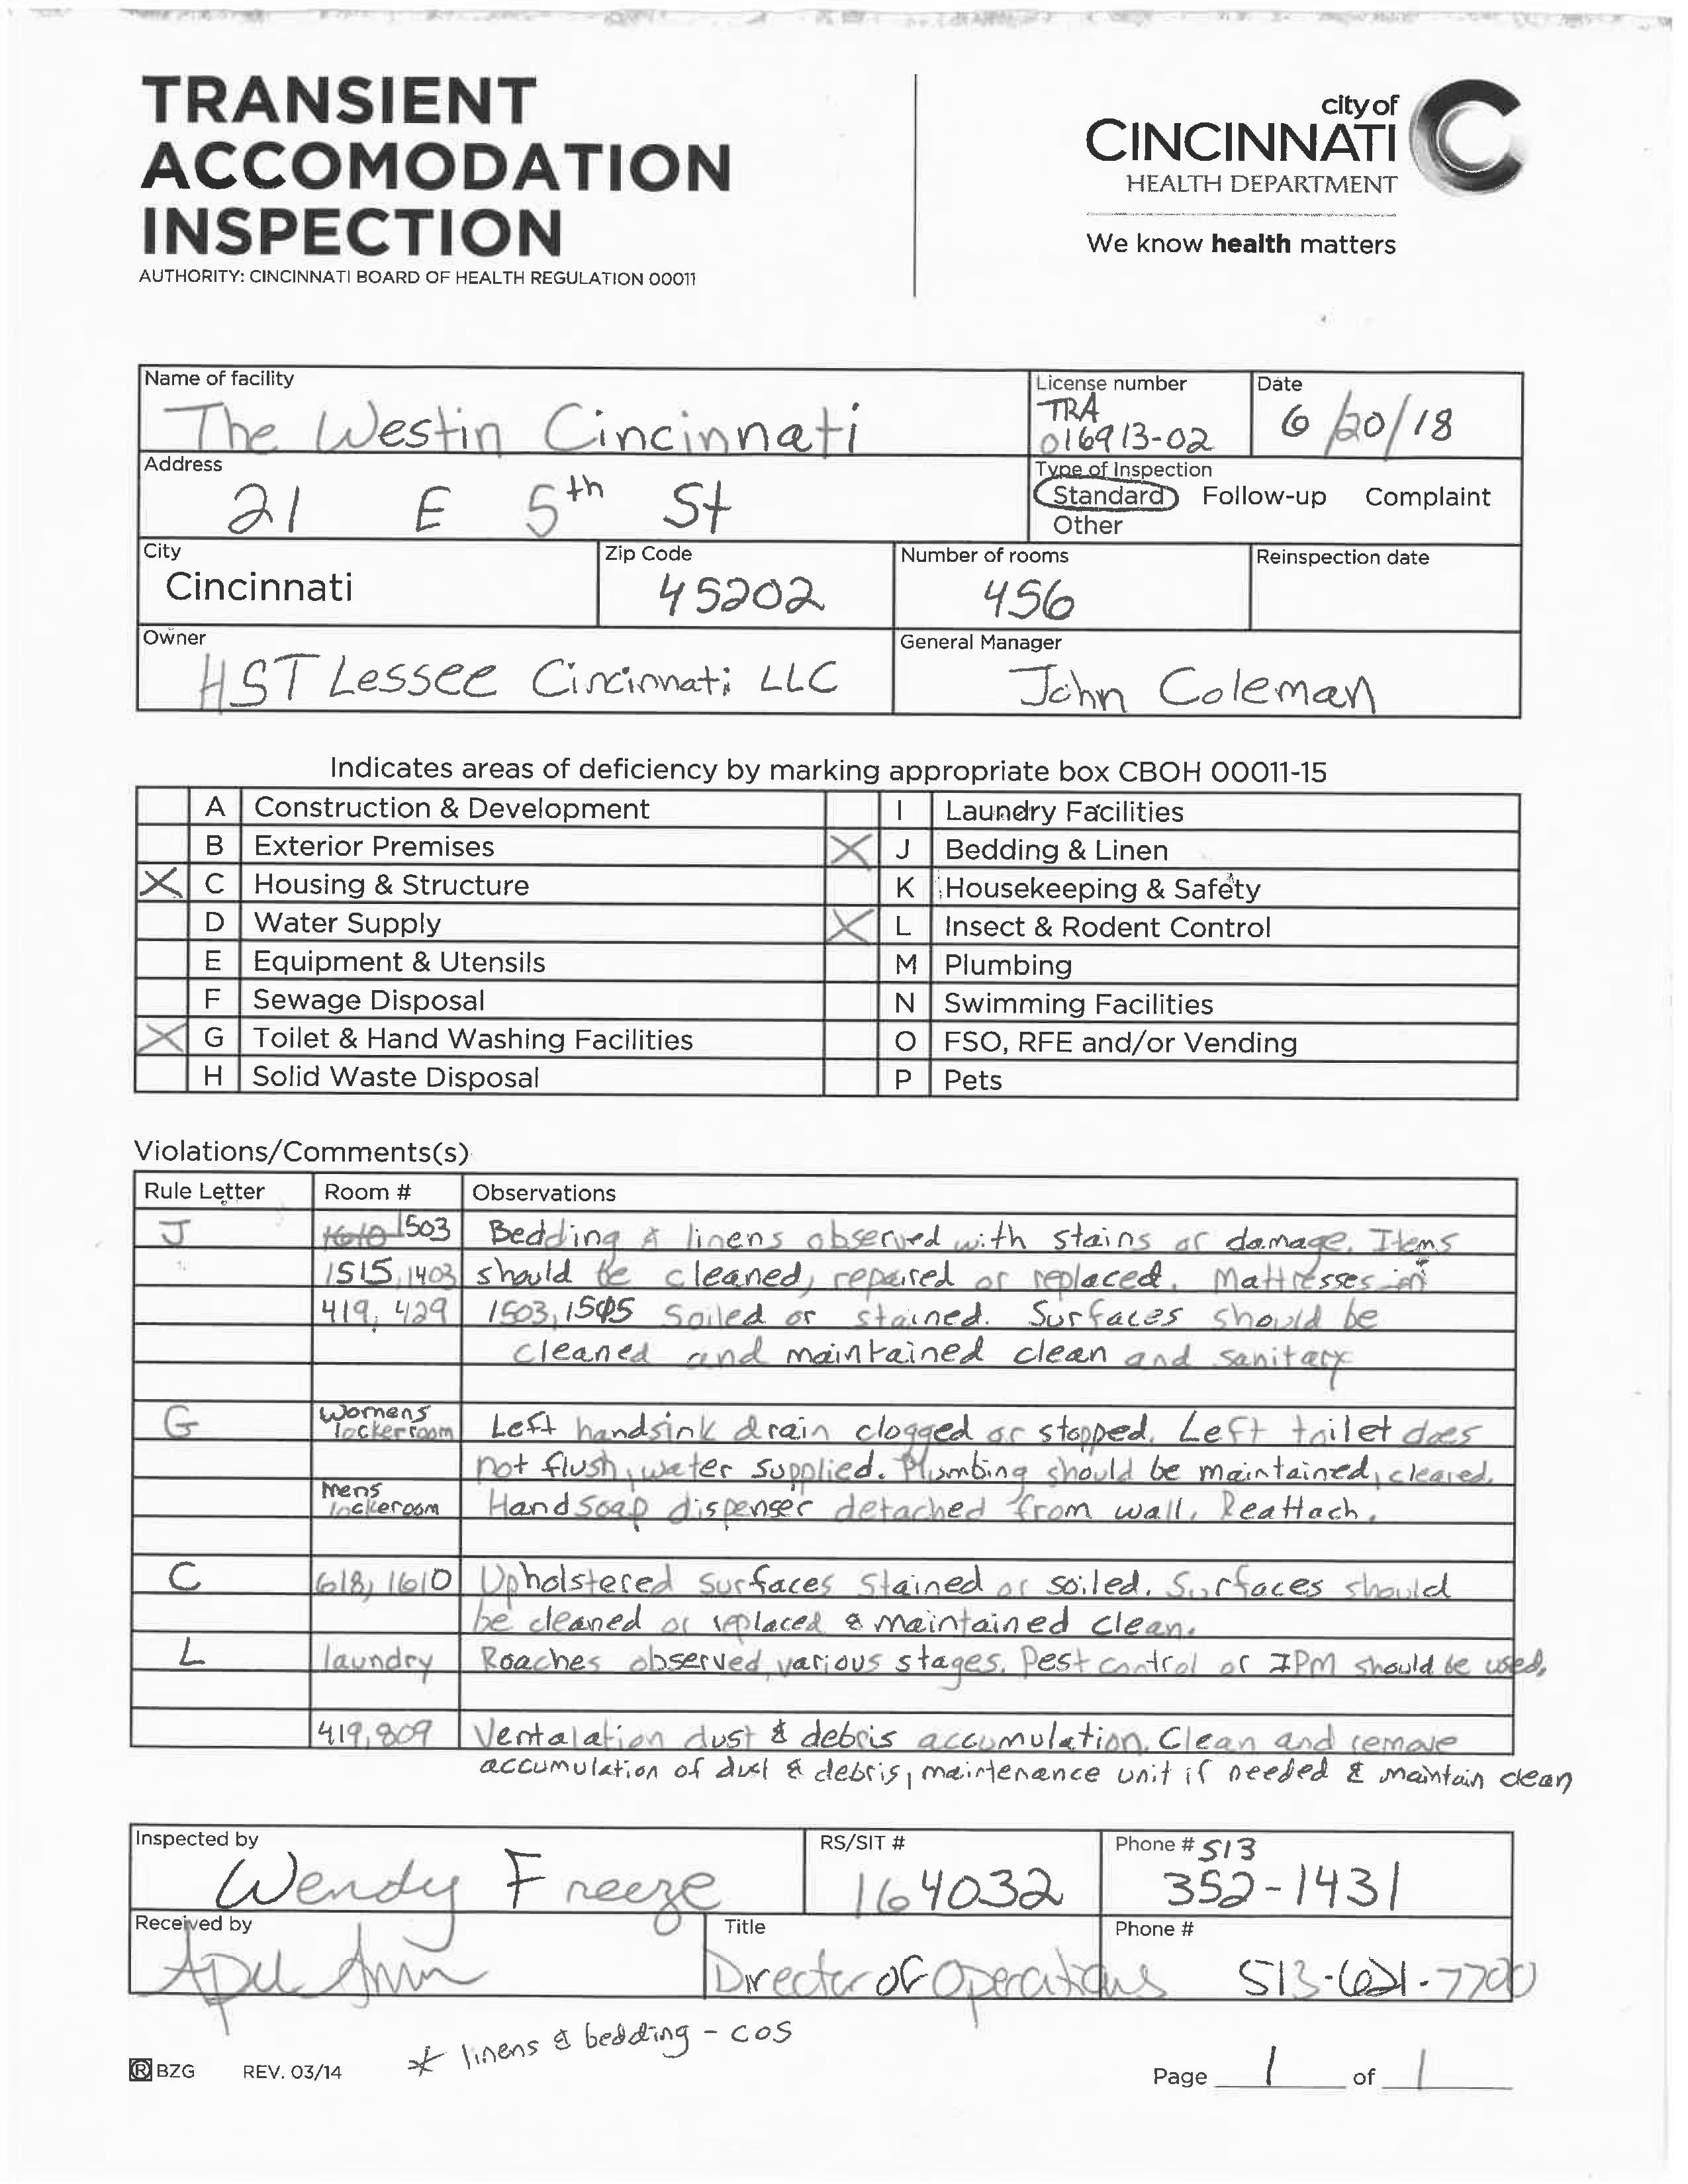 TRANSIENT
ACCOMODATION
INSPECTION
AUTHORITY: CINCINNATI BOARD OF HEALTH REGULATION 00011
city of
CINCINNATI
HEALTH DEPARTMENT
We know health matters
Name of facility
The Westin Cincinnati
License number
TRA
016913-02
Date
6/20/18
Address
21 E 5th St
Type of Inspection
Standard Follow-up Complaint
Other
City
Cincinnati
Zip Code
45202
Number of rooms
456
Reinspection date
Owner
HST Lessee Cincinnati LLC
General Manager
John Coleman
Indicates areas of deficiency by marking appropriate box CBOH 00011-15
A Construction & Development I Laundry Facilities
B Exterior Premises X J Bedding & Linen
X C Housing & Structure K Housekeeping & Safety
D Water Supply X L Insect & Rodent Control
E Equipment & Utensils M Plumbing
F Sewage Disposal N Swimming Facilities
X G Toilet & Hand Washing Facilities O FSO, RFE and/or Vending
H Solid Waste Disposal P Pets
Violations/Comments(s)
Rule Letter Room # Observations
J 1610 1503 Bedding & linens observed with stains or damage. Items
1515, 1403 should be cleaned, repaired or replaced. Mattresses in
419, 429 1503, 1505 Soiled or stained. Surfaces should be
cleaned and maintained clean and sanitary
G Womens lockerroom Left handsink drain clogged or stopped. Left toilet does
not flush, water supplied. Plumbing should be maintained, cleared.
Mens lockeroom Hand soap dispenser detached from wall. Reattach.
C 618, 1610 Upholstered surfaces stained or soiled. Surfaces should
be cleaned or replaced & maintained clean.
L laundry Roaches observed, various stages. Pest control or IPM should be used.
419, 809 Ventalation dust & debris accumulation. Clean and remove
accumulation of dust & debris, maintenance unit if needed & maintain clean
Inspected by
Wendy Freeze
RS/SIT #
164032
Phone # 513
352-1431
Received by
Title
Director of Operations
Phone #
513-621-7700
* linens & bedding - COS
® BZG REV. 03/14
Page 1 of 1